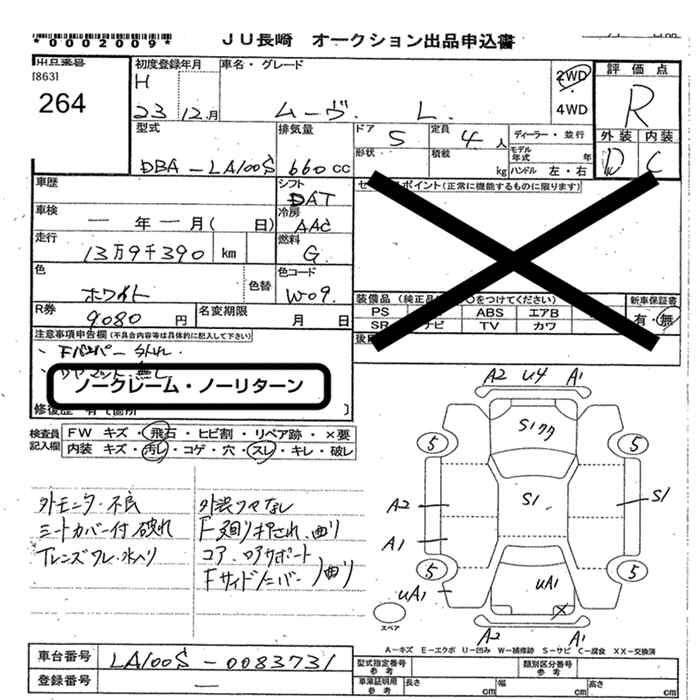 *0002009*
JU長崎 オークション出品申込書
出品番号
[863]
264
初度登録年月
H
23 12月
車名・グレード
ムーヴ L
2WD
4WD
評価点
R
外装 内装
D C
型式
DBA-LA100S
排気量
660 cc
ドア
5
定員
4人
ディーラー・並行
形状
積載
kg
モデル年式 年
ハンドル 左・右
車歴
シフト
DAT
車検
一 年 一 月( 日)
冷房
AAC
走行
13万9千390 km
燃料
G
色
ホワイト
色替
色コード
W09
R券
9080 円
名変期限
月 日
ポイント(正常に機能するものに限ります)
装備品(純正品 ○をつけてください)
PS ABS エアB
SR ナビ TV カワ
新車保証書
有・無
注意事項申告欄(不具合内容等は具体的に記入して下さい)
・Fバンパー 外れ.
ノークレーム・ノーリターン
修復歴 有(箇所 )
検査員記入欄
FW キズ・飛石・ヒビ割・リペア跡・×要
内装 キズ・汚レ・コゲ・穴・スレ・キレ・破レ
外モニタ・不良
シートカバー付 破れ
外装ツヤなし
F廻り押され、曲り
コア、コアサポート
Fサイドメンバー 曲り
A2 U4 A1
S1 クク
5 5
S1
S1
A2
A1
5 5
UA1
UA1
×
A2 A1
スペア
A-キズ E-エクボ U-凹み W-補修跡 S-サビ C-腐食 XX-交換済
車台番号
LA100S-0083731
登録番号
一
型式指定番号 参考
類別区分番号 参考
車庫証明用 参考
長さ cm 幅 cm 高さ cm